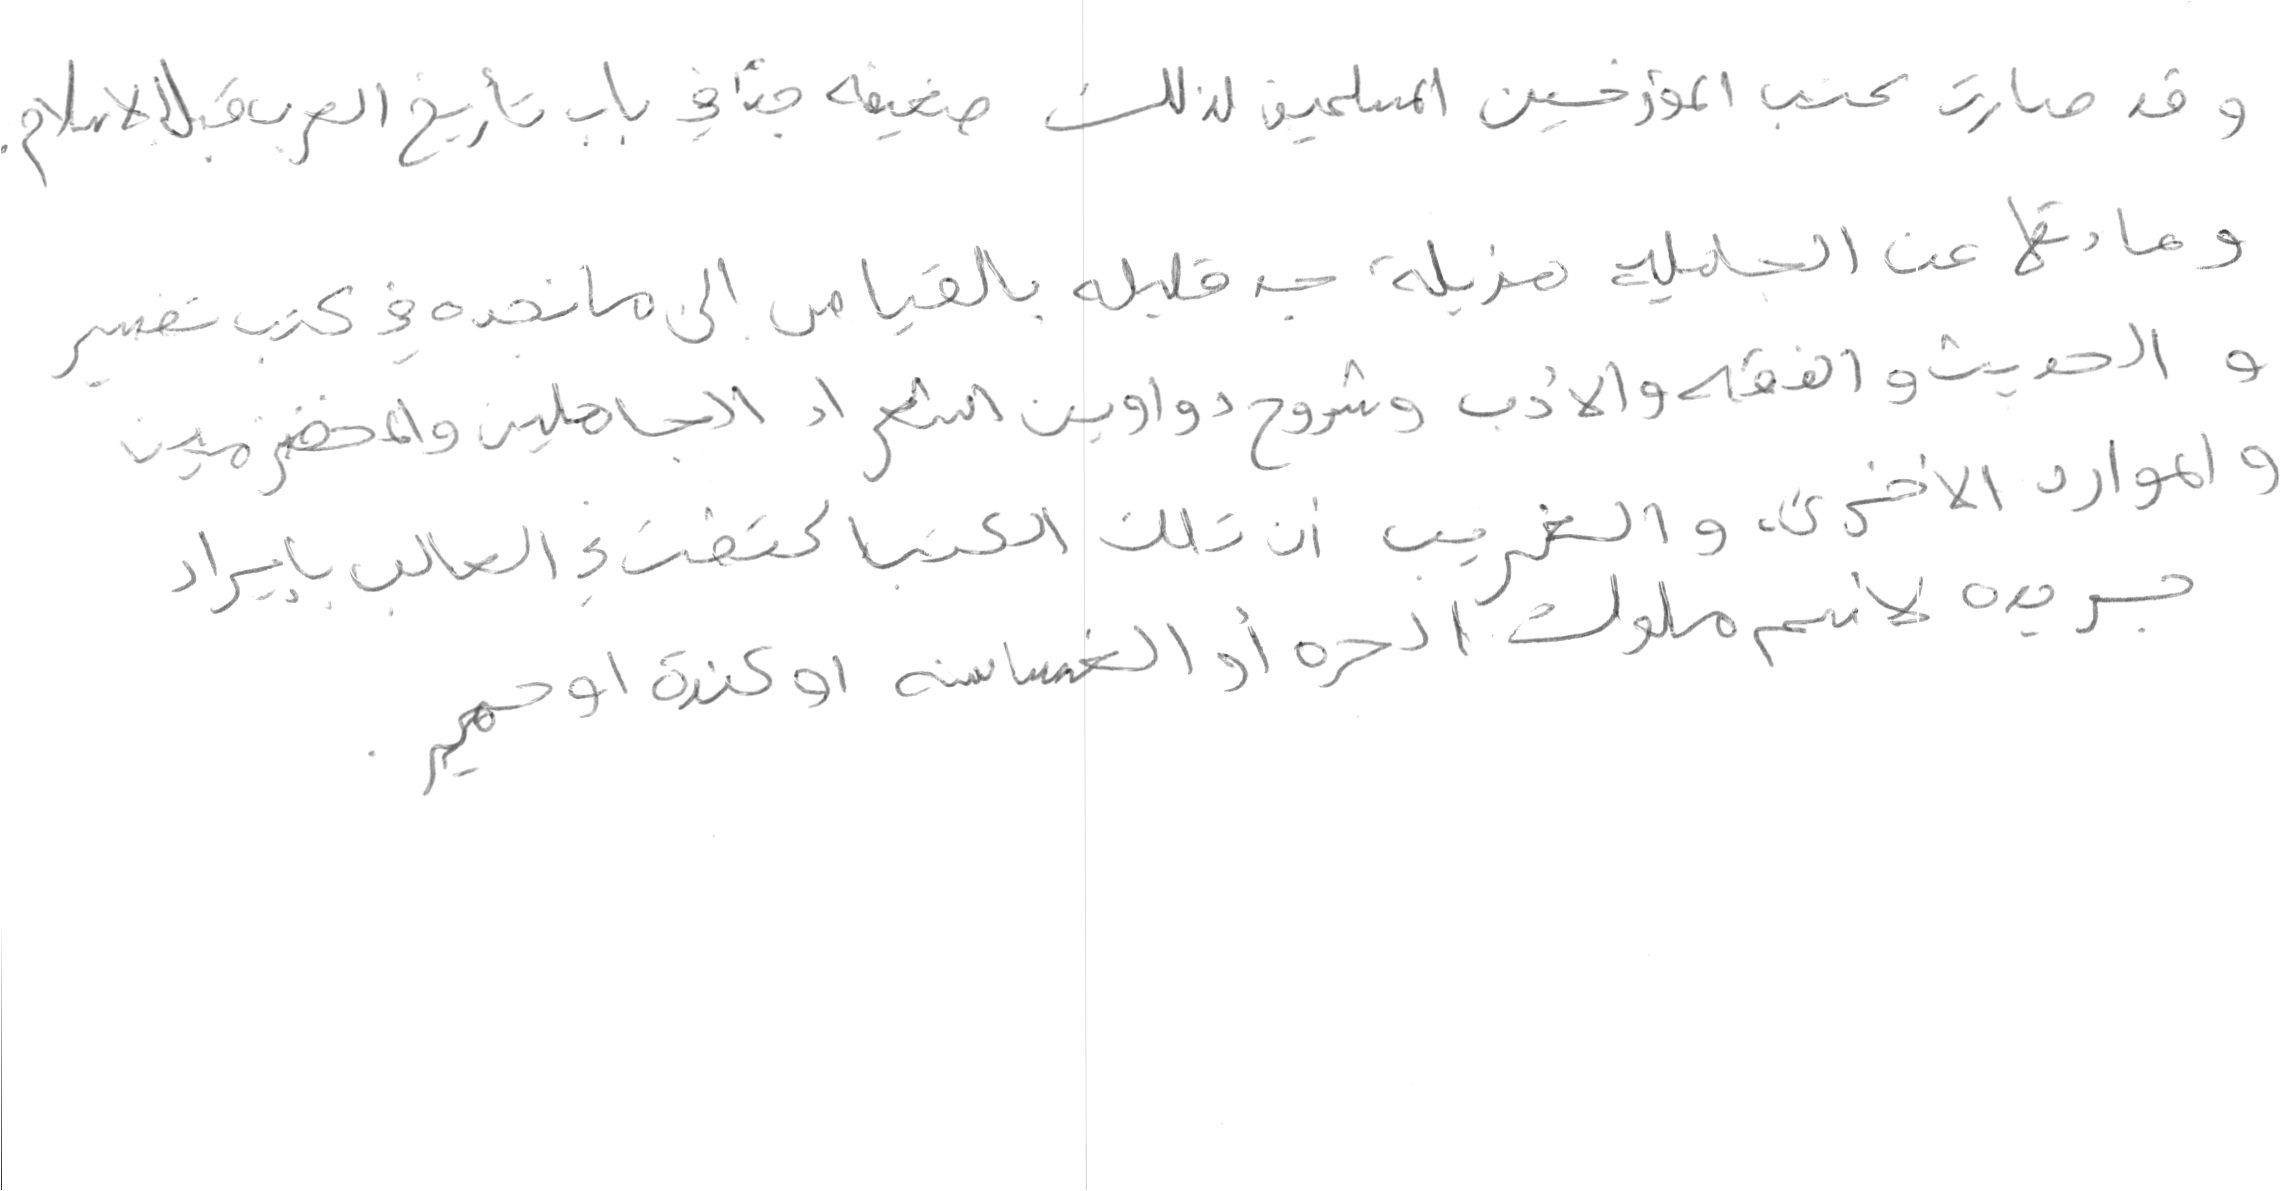 وقد صارت كتب المؤرخين المسلمين لذلك ضعيفه جدًا في باب تأريخ العرب قبل الاسلام.
ومادتها عن الجاهلية هزيلة جد قليله بالقياس إلى ما نجده في كتب تفسير
و الحديث و الفقه والأدب وشروح دواوين الشعراء الجاهلين والمخضرمين
و الموارد الأخرى، و الغريب أن تلك الكتب اكتفت في الغالب بإيراد
جريده لأسم ملوك الحره أو الغساسنه او كندة او حمير.